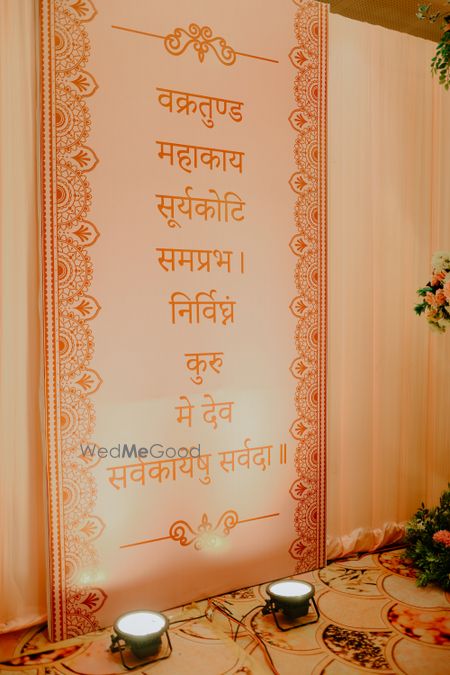 वक्रतुण्ड
महाकाय
सूर्यकोटि
समप्रभ।
निर्विघ्नं
कुरु
मे देव
WedMeGood
सर्वकार्येषु सर्वदा॥